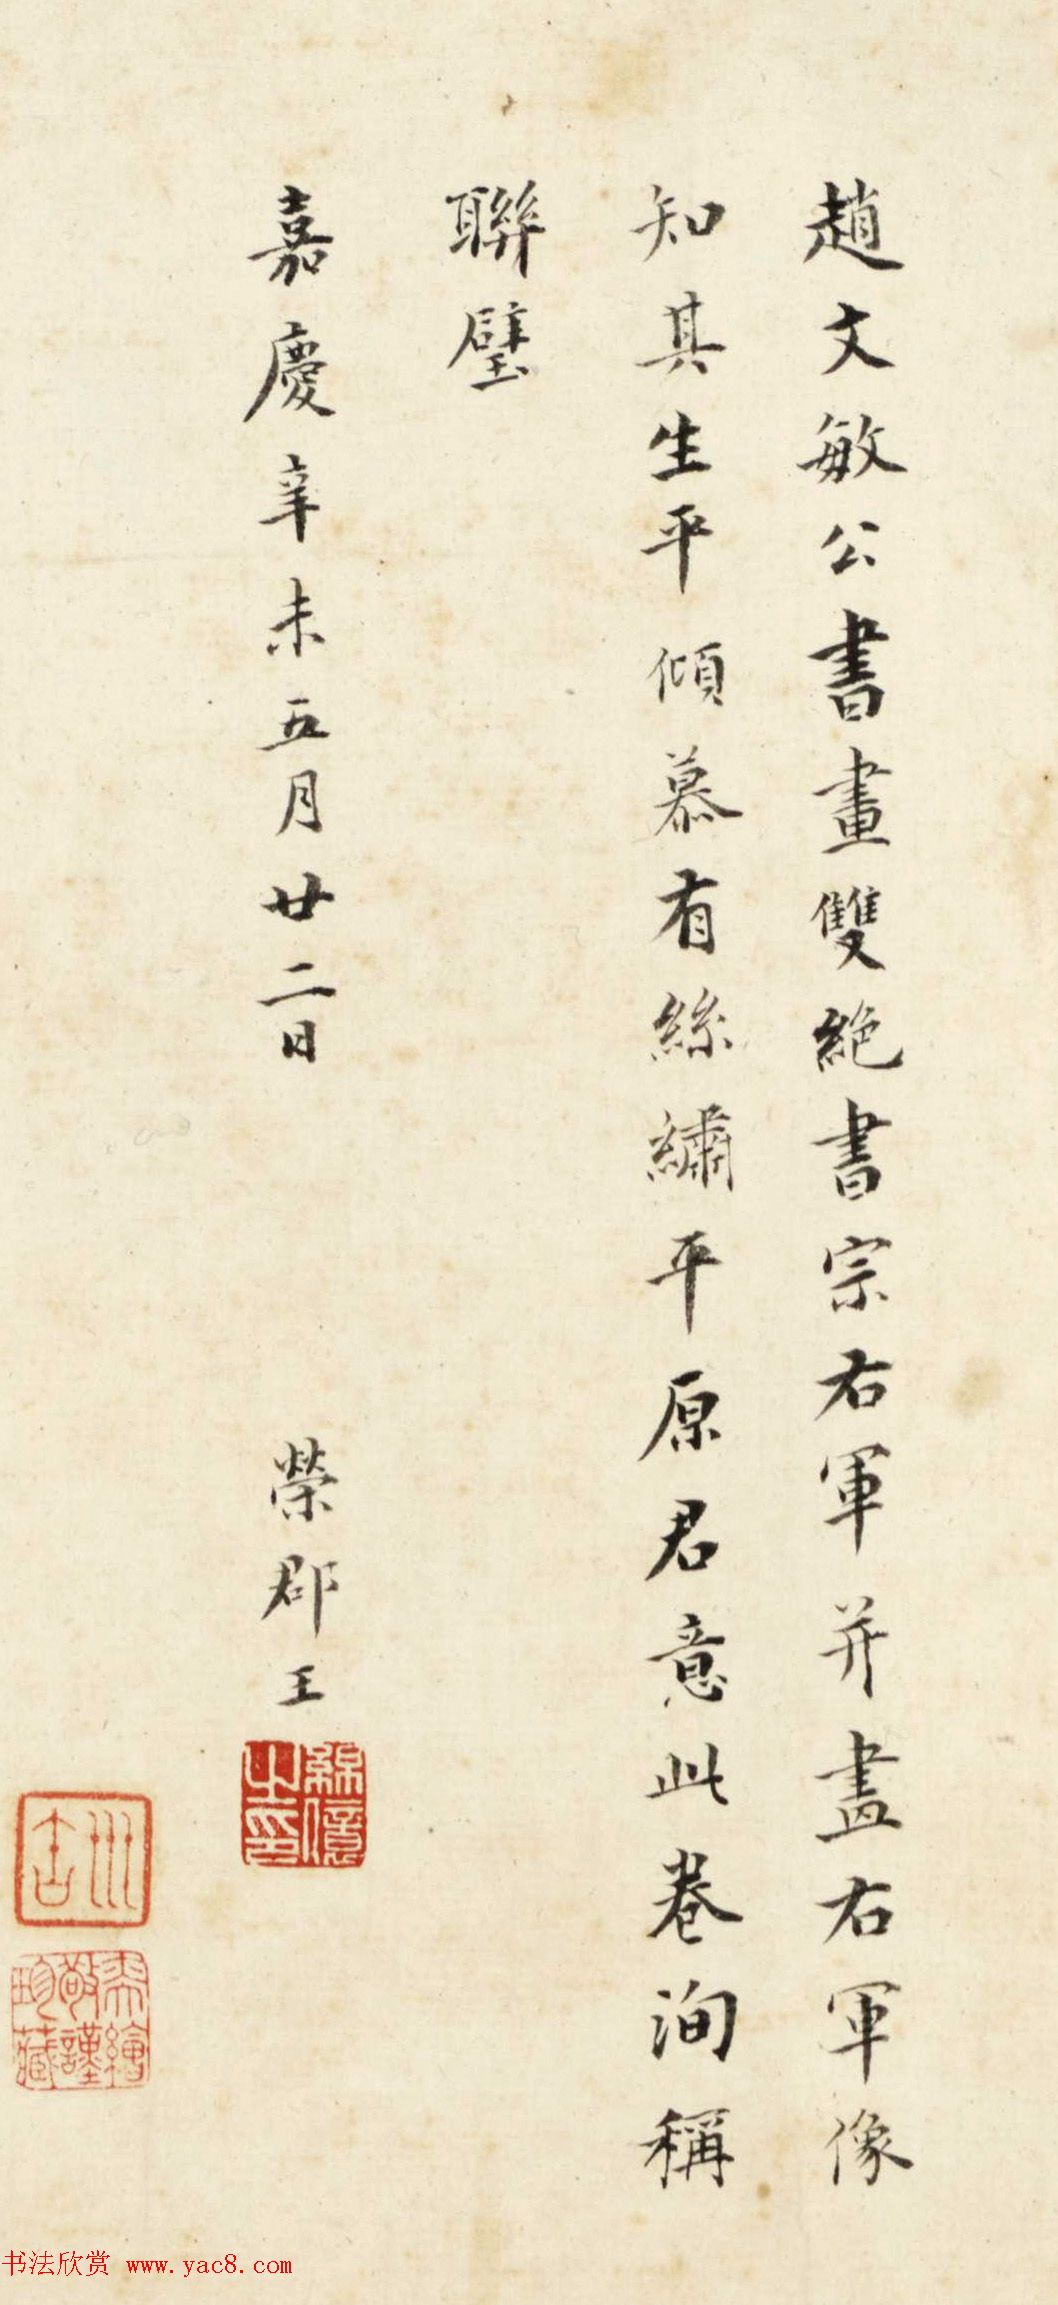 趙文敏公書畫雙絕書宗右軍并畫右軍像
知其生平傾慕有絲繡平原君意此卷洵稱
聯璧
嘉慶辛未五月廿二日
榮郡王
綿億之印
奕繪敬謹珍藏
书法欣赏 www.yac8.com